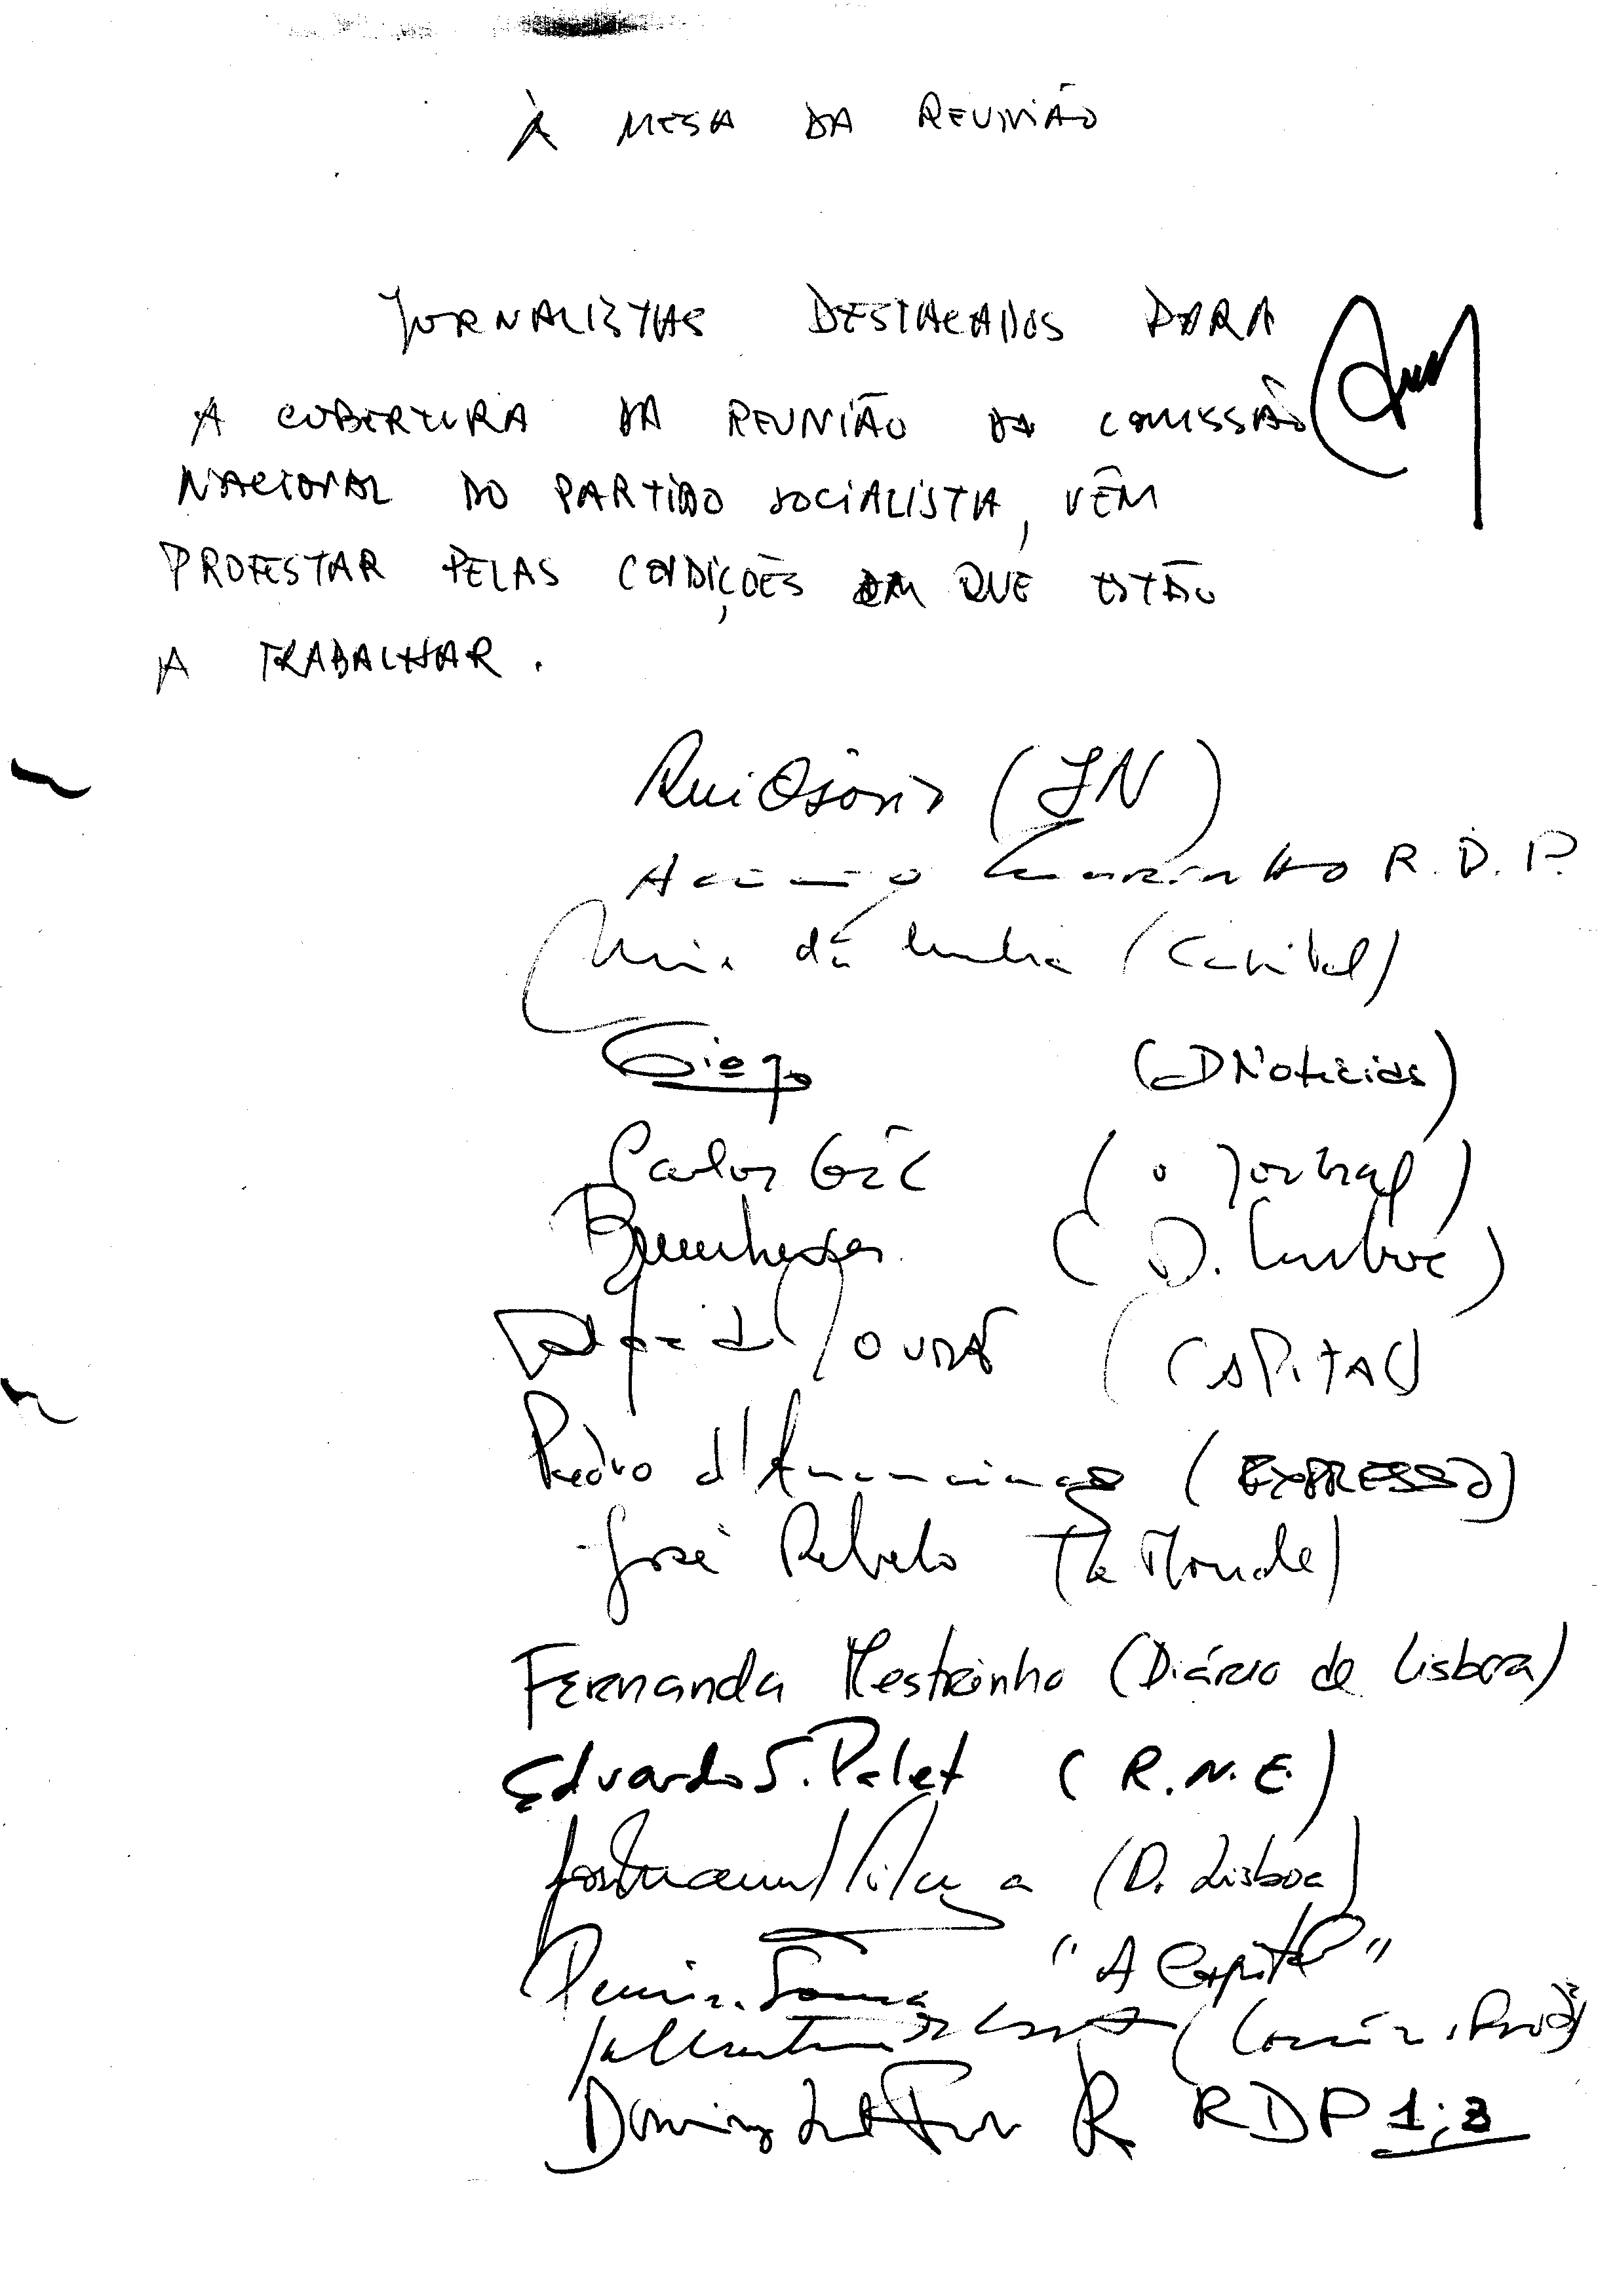 À MESA DA REUNIÃO
JORNALISTAS DESTACADOS PARA
A COBERTURA DA REUNIÃO DA COMISSÃO
NACIONAL DO PARTIDO SOCIALISTA, VÊM
PROTESTAR PELAS CONDIÇÕES EM QUE ESTÃO
A TRABALHAR.
Rui Osório (JN)
R.D.P.
da Cunha (Capital)
Diogo (DNotícias)
Carlos Gil (o Jornal)
(D. Lisboa)
MOURÃO (CAPITAL)
Pedro d'Anunciação (EXPRESSO)
José Rebelo (Le Monde)
Fernanda Mestrinho (Diário de Lisboa)
Eduardo S. Palet (R.N.E.)
(D. Lisboa)
"A Capital"
RDP 1;3